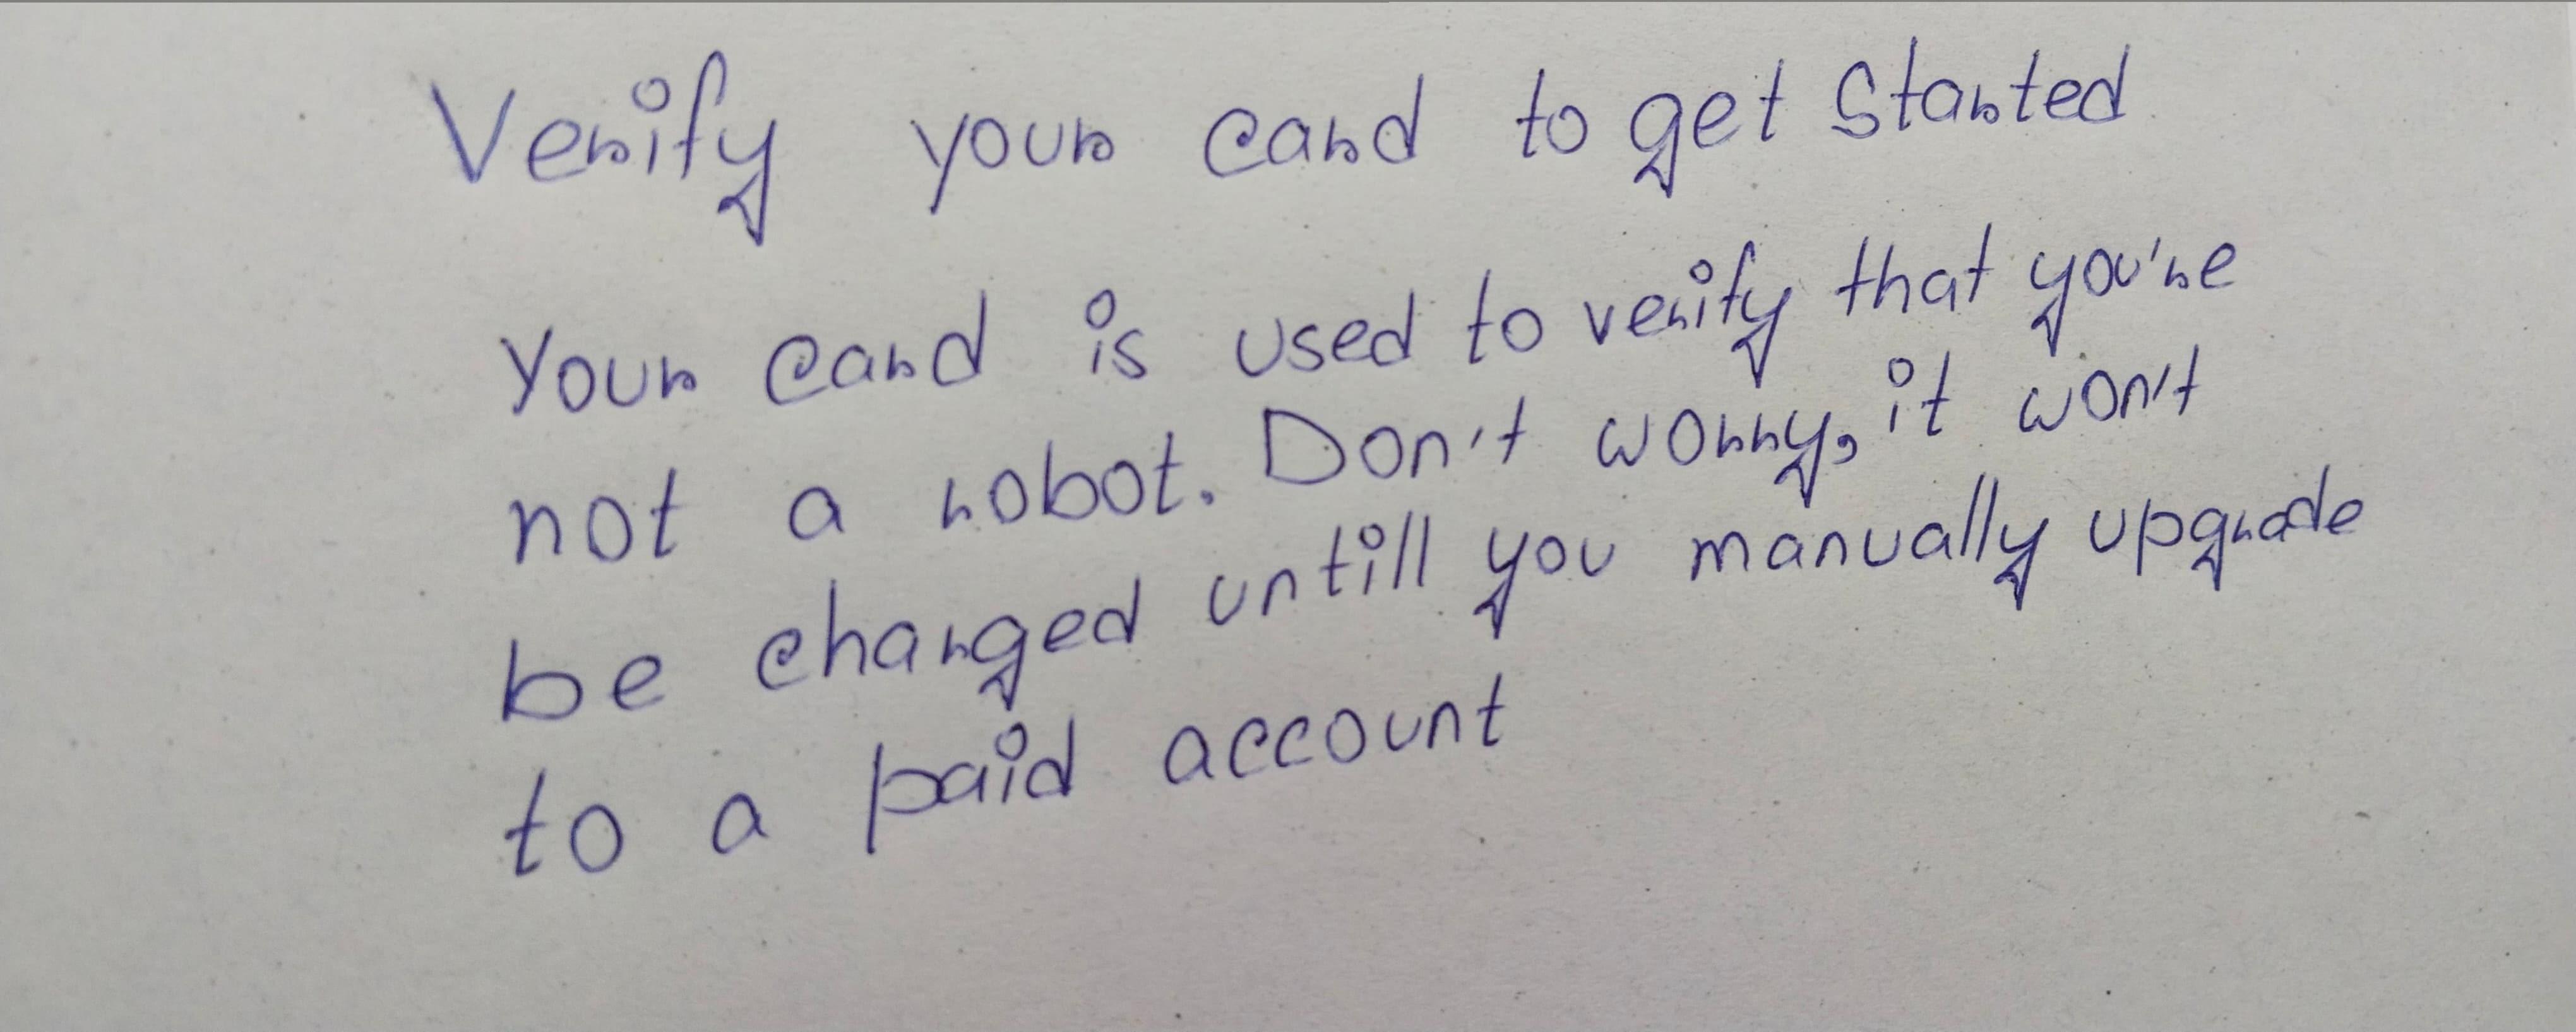 Verify your card to get Started
Your card is used to verify that you're
not a robot. Don't worry, it won't
be charged untill you manually upgrade
to a paid account